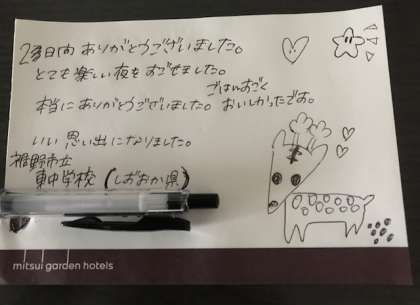 2泊日間 ありがとうございました。
とても楽しい夜をおごせました。
ごはんすごく
本当にありがとうございました。おいしかったです。
いい思い出になりました。
裾野市立
東中学校 (しずおか県)
mitsui garden hotels